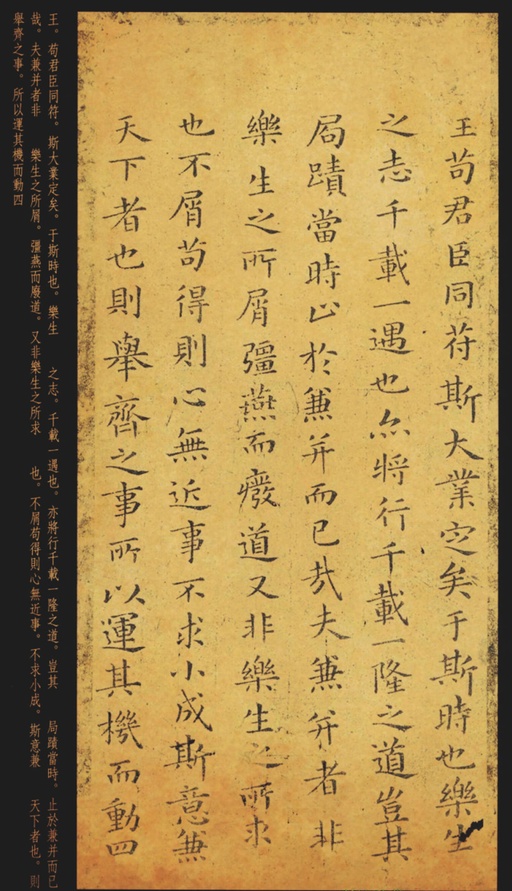 王苟君臣同苻斯大業定矣于斯時也樂生
之志千載一遇也亦將行千載一隆之道豈其
局蹟當時止於兼并而已哉夫兼并者非
樂生之所屑彊燕而癈道又非樂生之所求
也不屑苟得則心無近事不求小成斯意兼
天下者也則舉齊之事所以運其機而動四
王。苟君臣同符。斯大業定矣。于斯時也。樂生 之志。千載一遇也。亦將行千載一隆之道。豈其 局蹟當時。止於兼并而已
哉。夫兼并者非 樂生之所屑。彊燕而廢道。又非樂生之所求 也。不屑苟得則心無近事。不求小成。斯意兼 天下者也。則
舉齊之事。所以運其機而動四